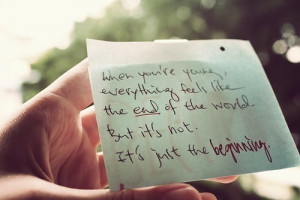 when you're young,
everything feel like
the end of the world.
But it's not.
It's just the beginning.